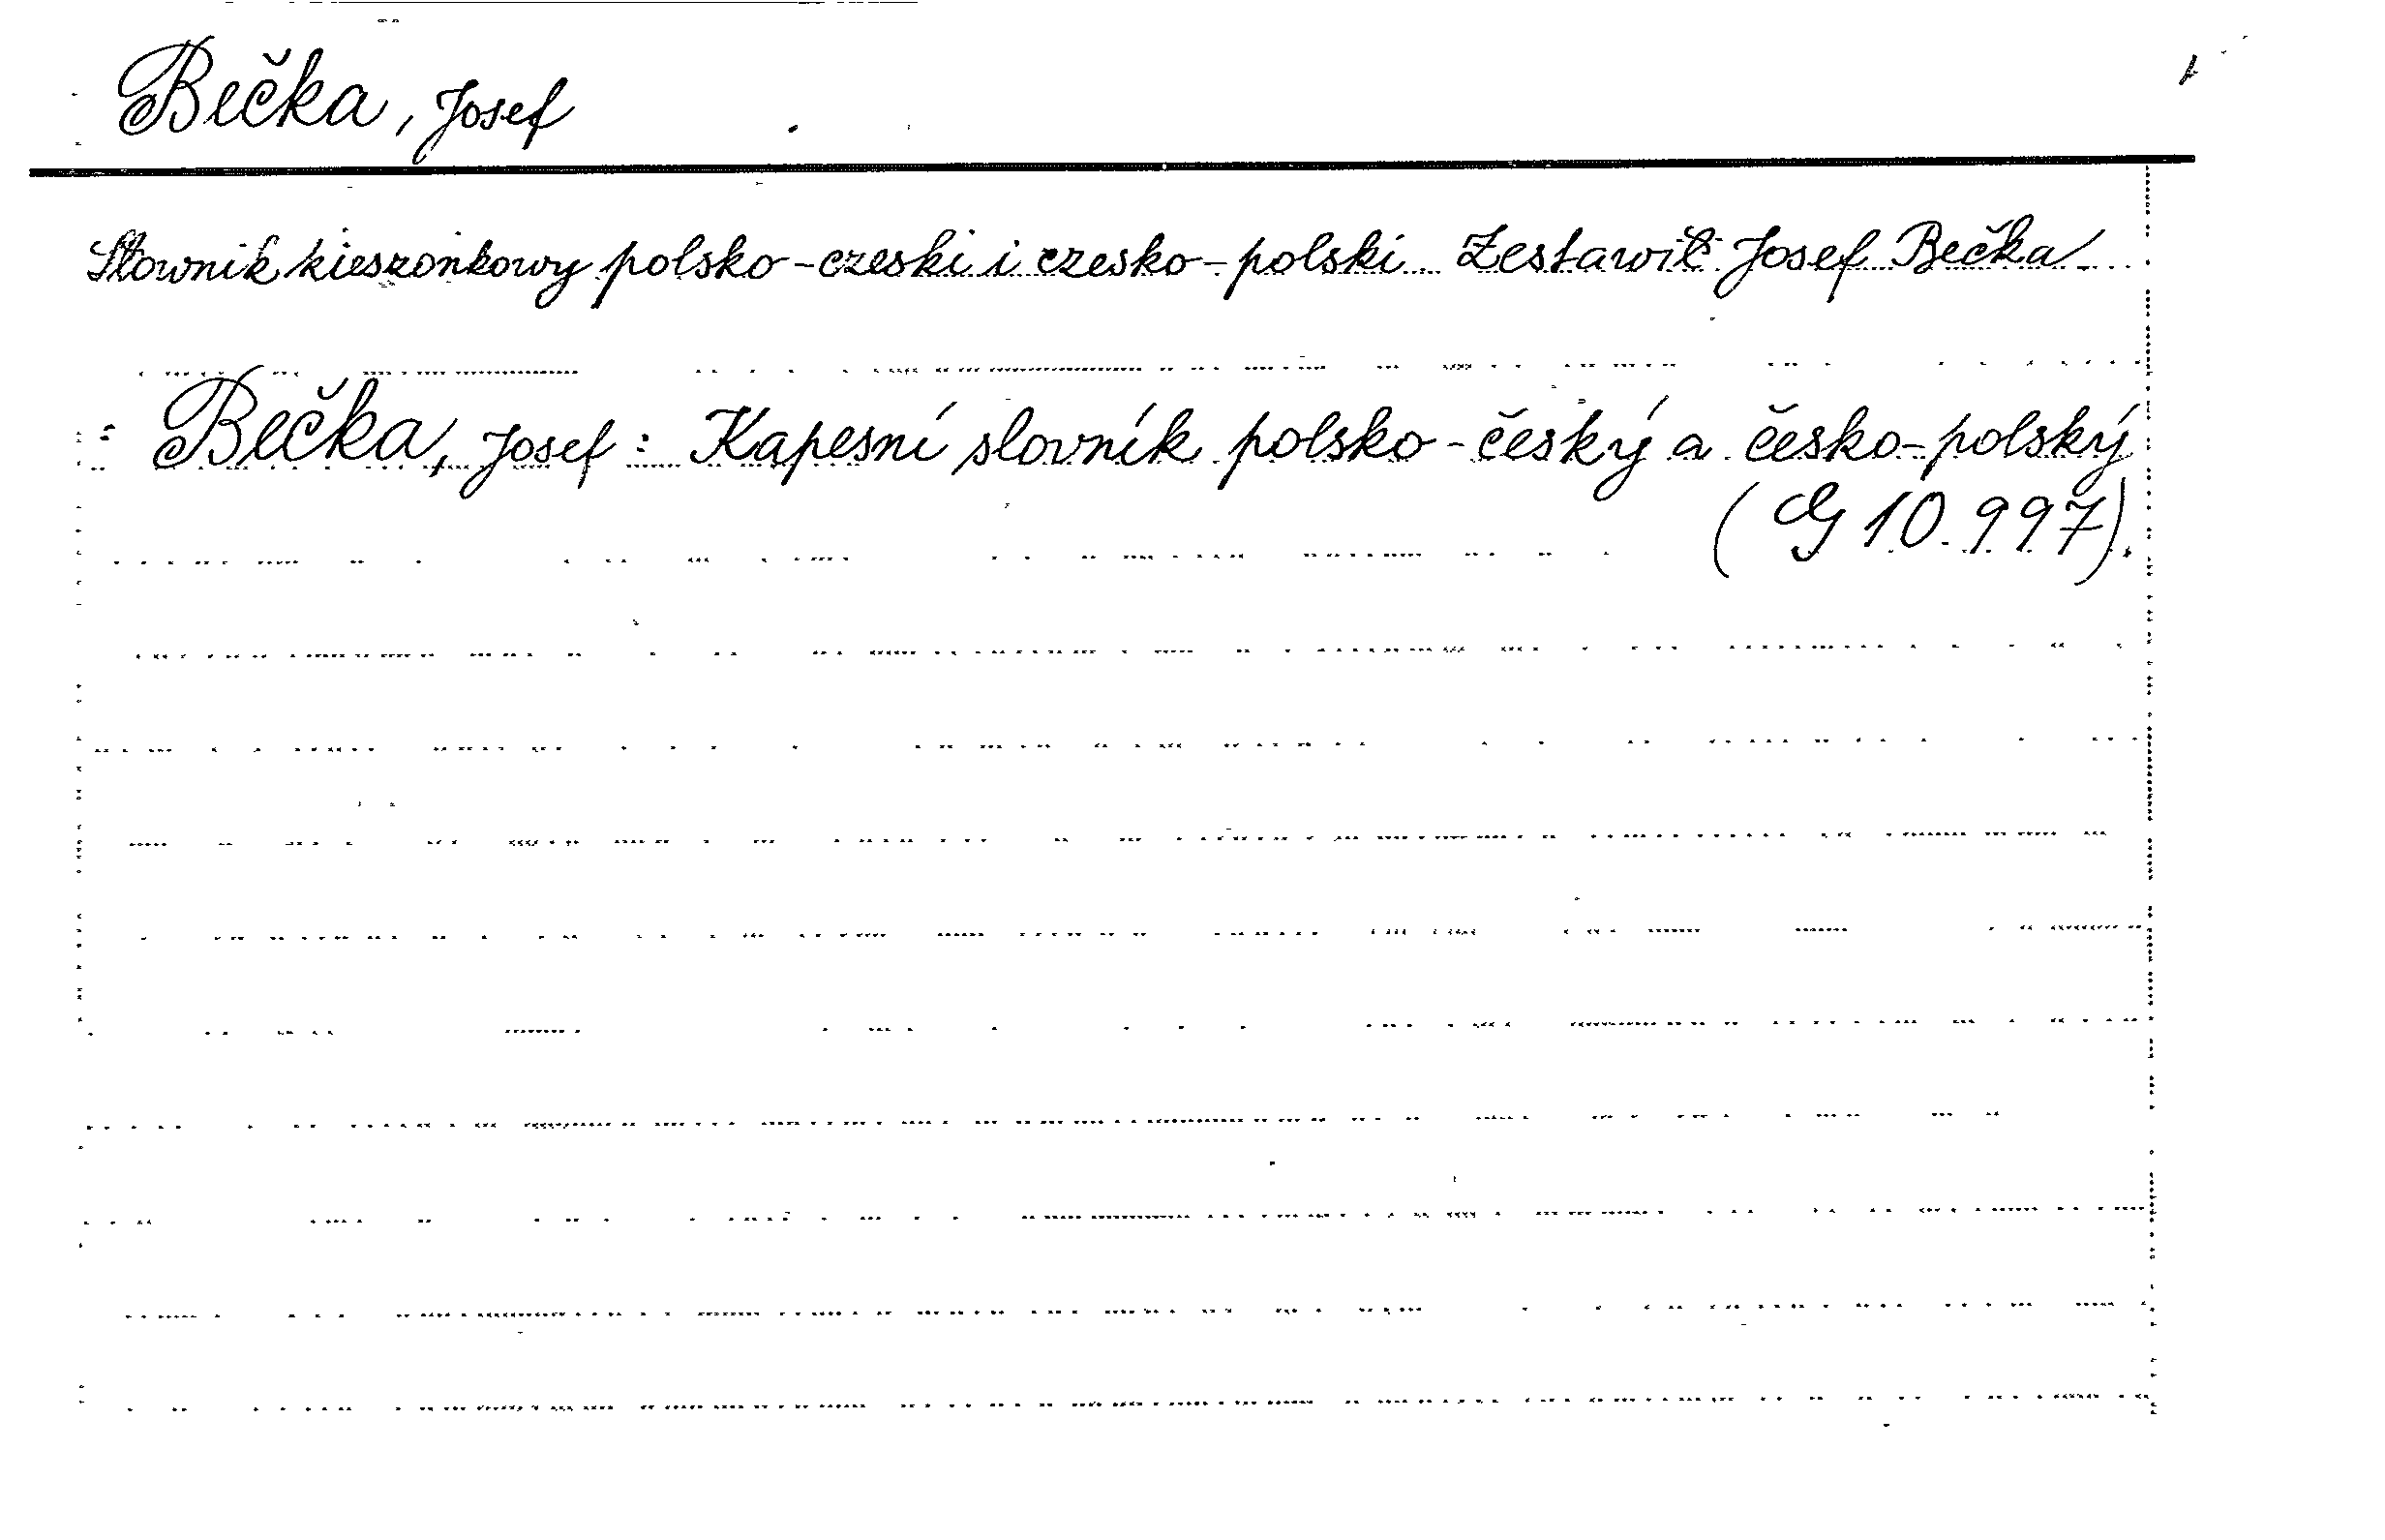 Bečka, Josef
Słownik kieszonkowy polsko-czeski i czesko-polski. Zestawił Josef Bečka.
= Bečka, Josef: Kapesní slovník polsko-český a česko-polský
(G 10.997).